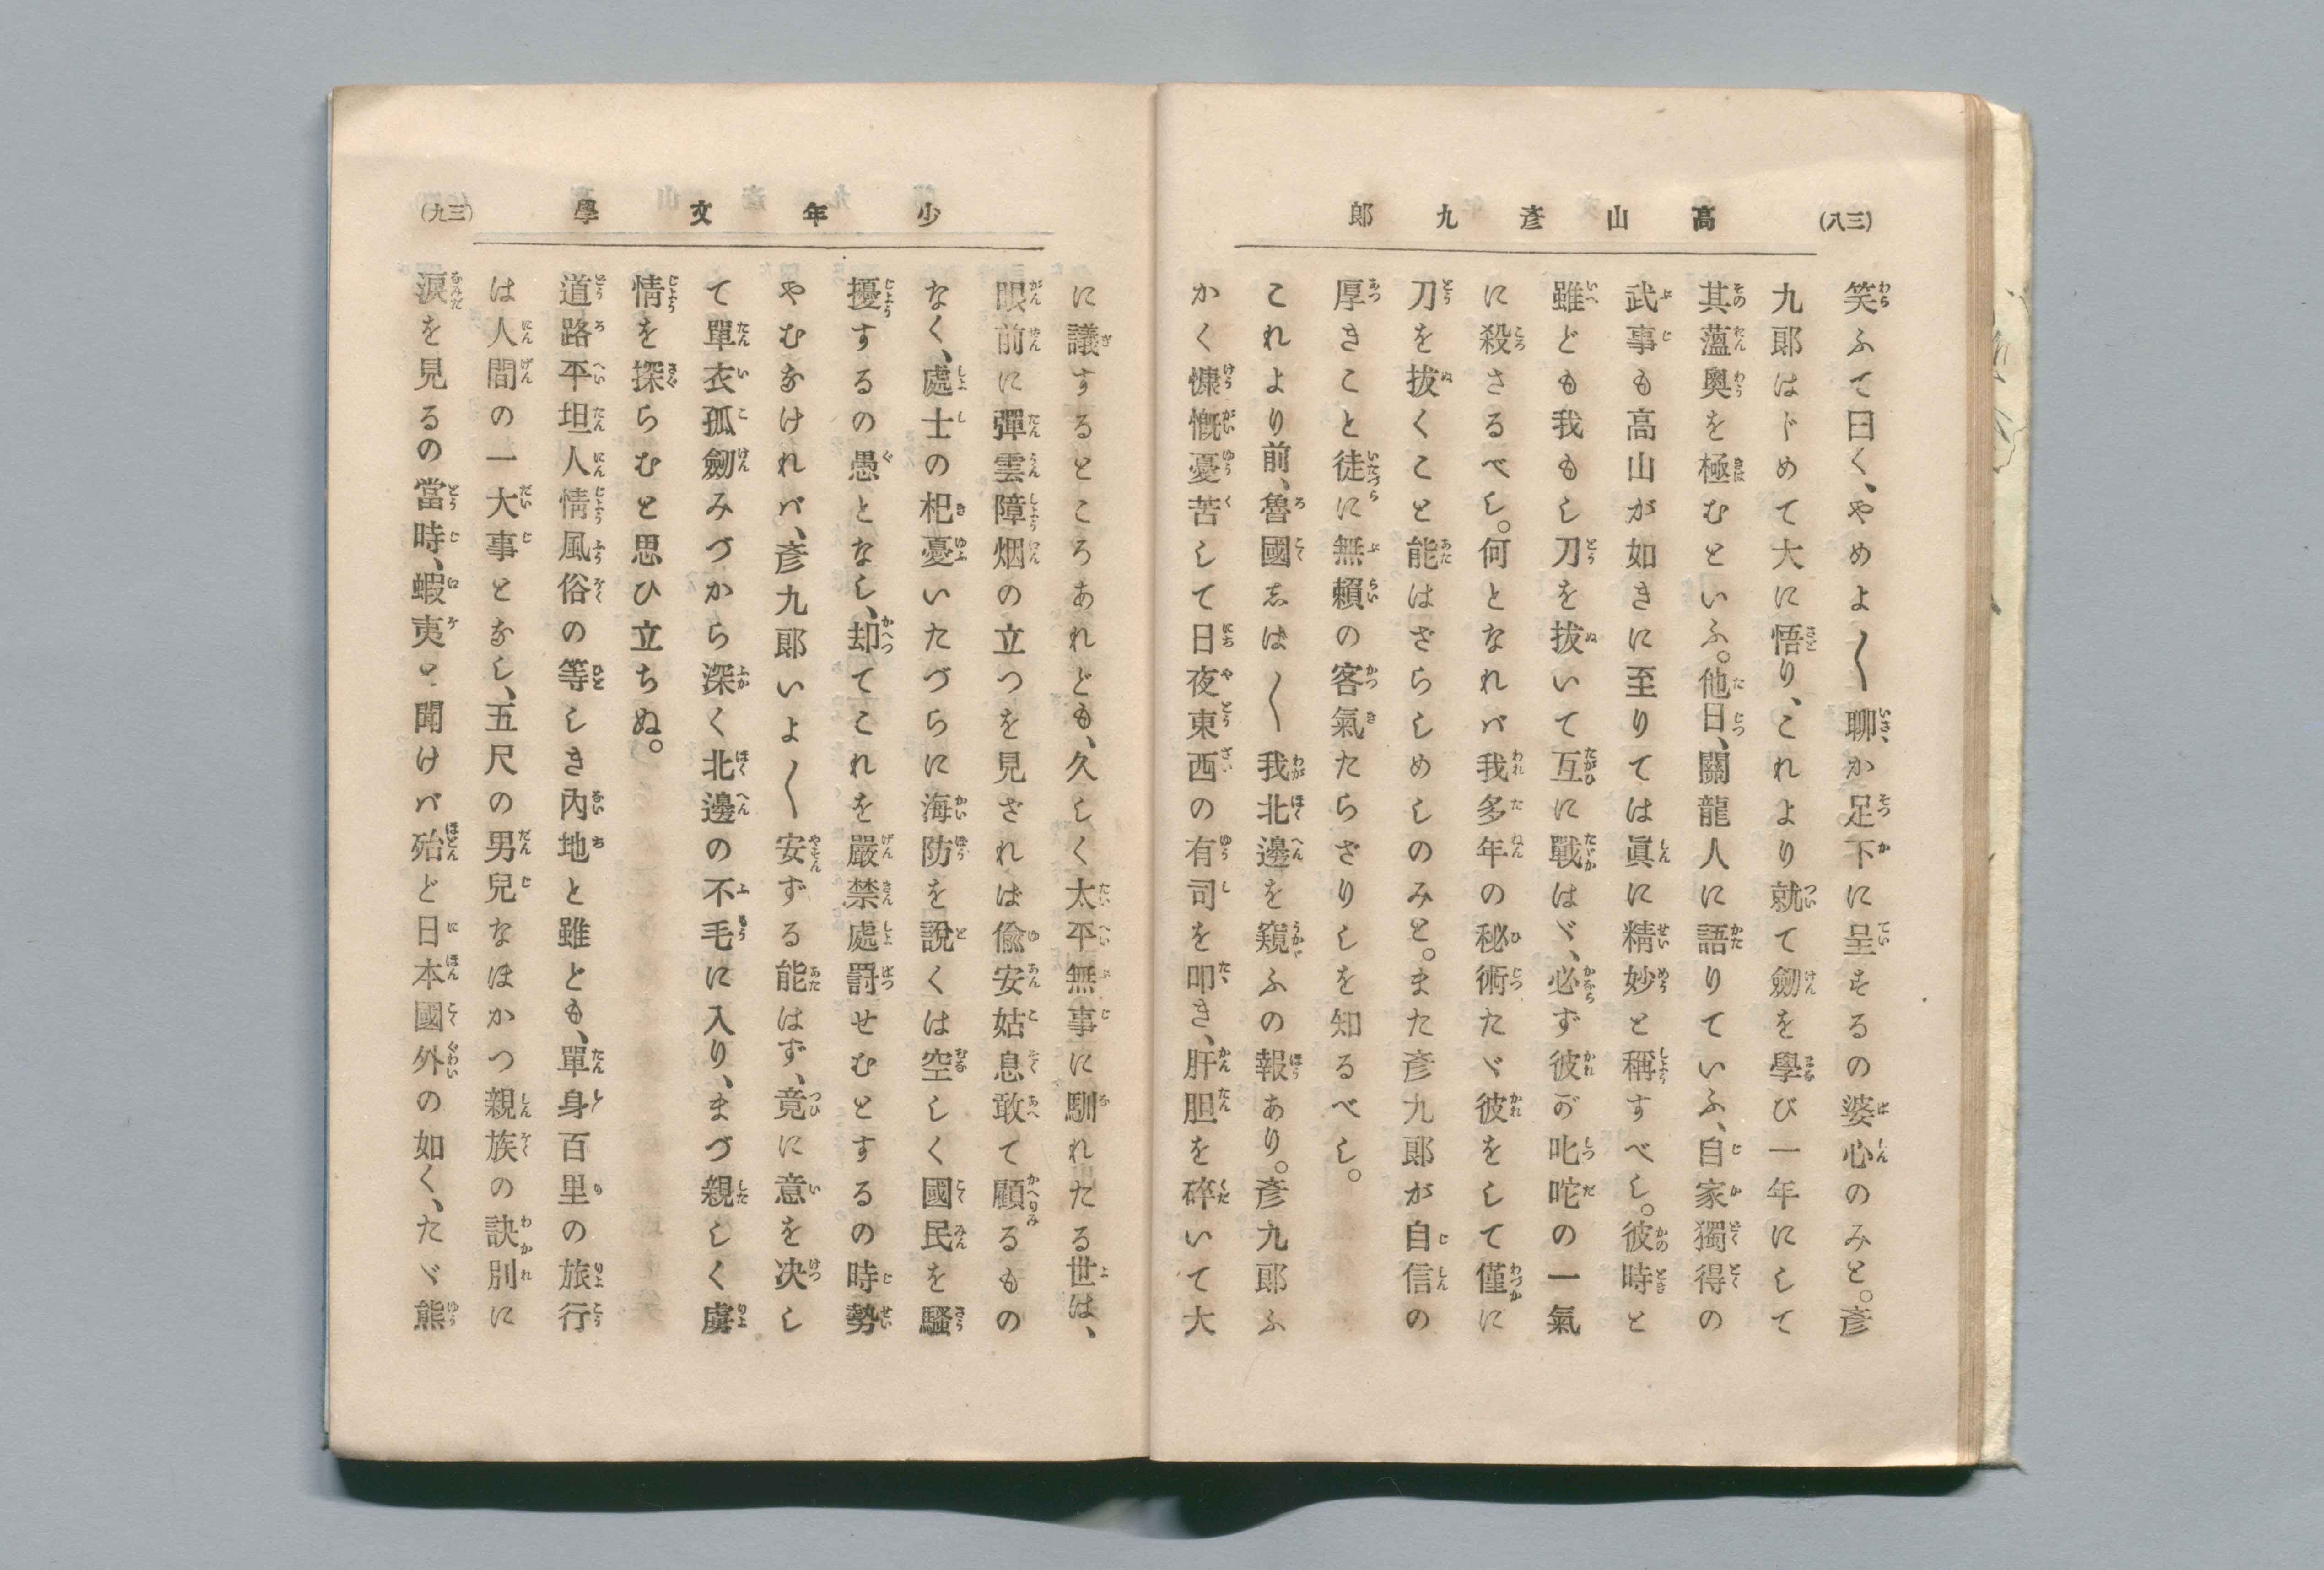 (三八)
高山彥九郎
笑ふて曰く、やめよ〱聊か足下に呈するの婆心のみと。彥
九郎はじめて大に悟り、これより就て劒を學び一年にして
其薀奥を極むといふ。他日、關龍人に語りていふ、自家獨得の
武事も高山が如きに至りては眞に精妙と稱すべし。彼時と
雖ども我もし刀を拔いて互に戰はゞ、必ず彼が叱咤の一氣
に殺さるべし。何となれバ我多年の秘術たゞ彼をして僅に
刀を拔くこと能はざらしめしのみと。また彥九郎が自信の
厚きこと徒に無賴の客氣たらざりしを知るべし。
これより前、魯國志ば〱我北邊を窺ふの報あり。彥九郎ふ
かく慷慨憂苦して日夜東西の有司を叩き、肝胆を碎いて大
少年文學
(三九)
に議するところあれども、久しく太平無事に馴れたる世は、
眼前に彈雲障烟の立つを見ざれは偸安姑息敢て顧るもの
なく、處士の杞憂いたづらに海防を說くは空しく國民を騷
擾するの愚となし、却てこれを嚴禁處罰せむとするの時勢
やむなけれバ、彥九郎いよ〱安ずる能はず、竟に意を决し
て單衣孤劒みづから深く北邊の不毛に入り、まづ親しく虜
情を探らむと思ひ立ちぬ。
道路平坦人情風俗の等しき內地と雖とも、單身百里の旅行
は人間の一大事となし、五尺の男兒なほかつ親族の訣別に
淚を見るの當時、蝦夷と聞けバ殆ど日本國外の如く、たゞ熊